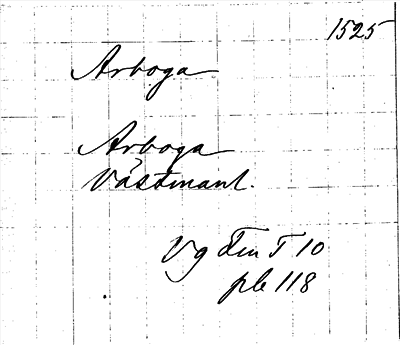 1525
Arboga
Arboga
Västmanl.
Vg Fm T 10
ple 118